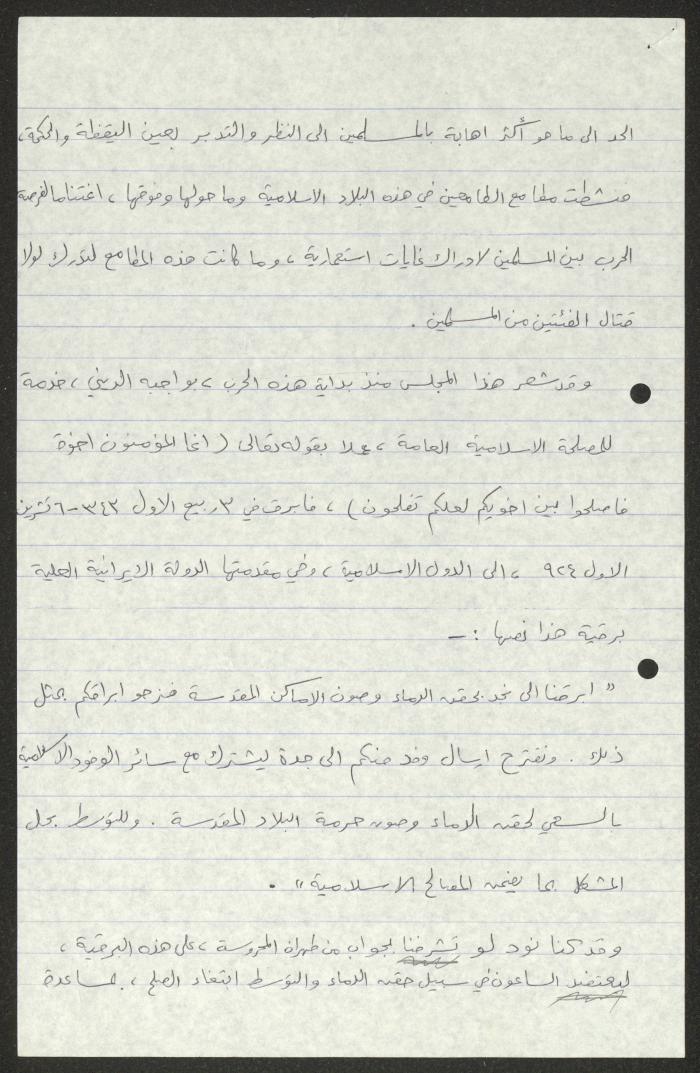 الحد الى ما هو أكثر اهابة بالمسلمين الى النظر والتدبر بعين اليقظة والحكمة،
فنشطت مطامع الطامعين في هذه البلاد الاسلامية وما حولها وفوقها، اغتناما لفرصة
الحرب بين المسلمين لادراك غايات استعمارية، وما كانت هذه المطامع لتدرك لولا
قتال الفئتين من المسلمين.
وقد شعر هذا المجلس منذ بداية هذه الحرب، بواجبه الديني، خدمة
للمصلحة الاسلامية العامة، عملا بقوله تعالى (انما المؤمنون اخوة
فاصلحوا بين اخويكم لعلكم تفلحون)، فابرق في ٣ ربيع الاول ٣٤٣-٦ تشرين
الاول ٩٢٤، الى الدول الاسلامية، وفي مقدمتها الدولة الايرانية العلية
برقية هذا نصها :ــ
" ابرقنا الى نجد بحقن الدماء وصون الاماكن المقدسة فنرجو ابراقكم بمثل
ذلك. ونقترح ارسال وفد منكم الى جدة ليشترك مع سائر الوفود الاسلامية
بالسعي لحقن الدماء وصون حرمة البلاد المقدسة. وللتوسط بحل
المشكل بما يضمن المصالح الاسلامية".
وقد كنا نود لو تشرفنا بجواب من طهران المحروسة، على هذه البرقية،
ليعتضد الساعون في سبيل حقن الدماء والتوسط ابتغاء الصلح، بمساعدة